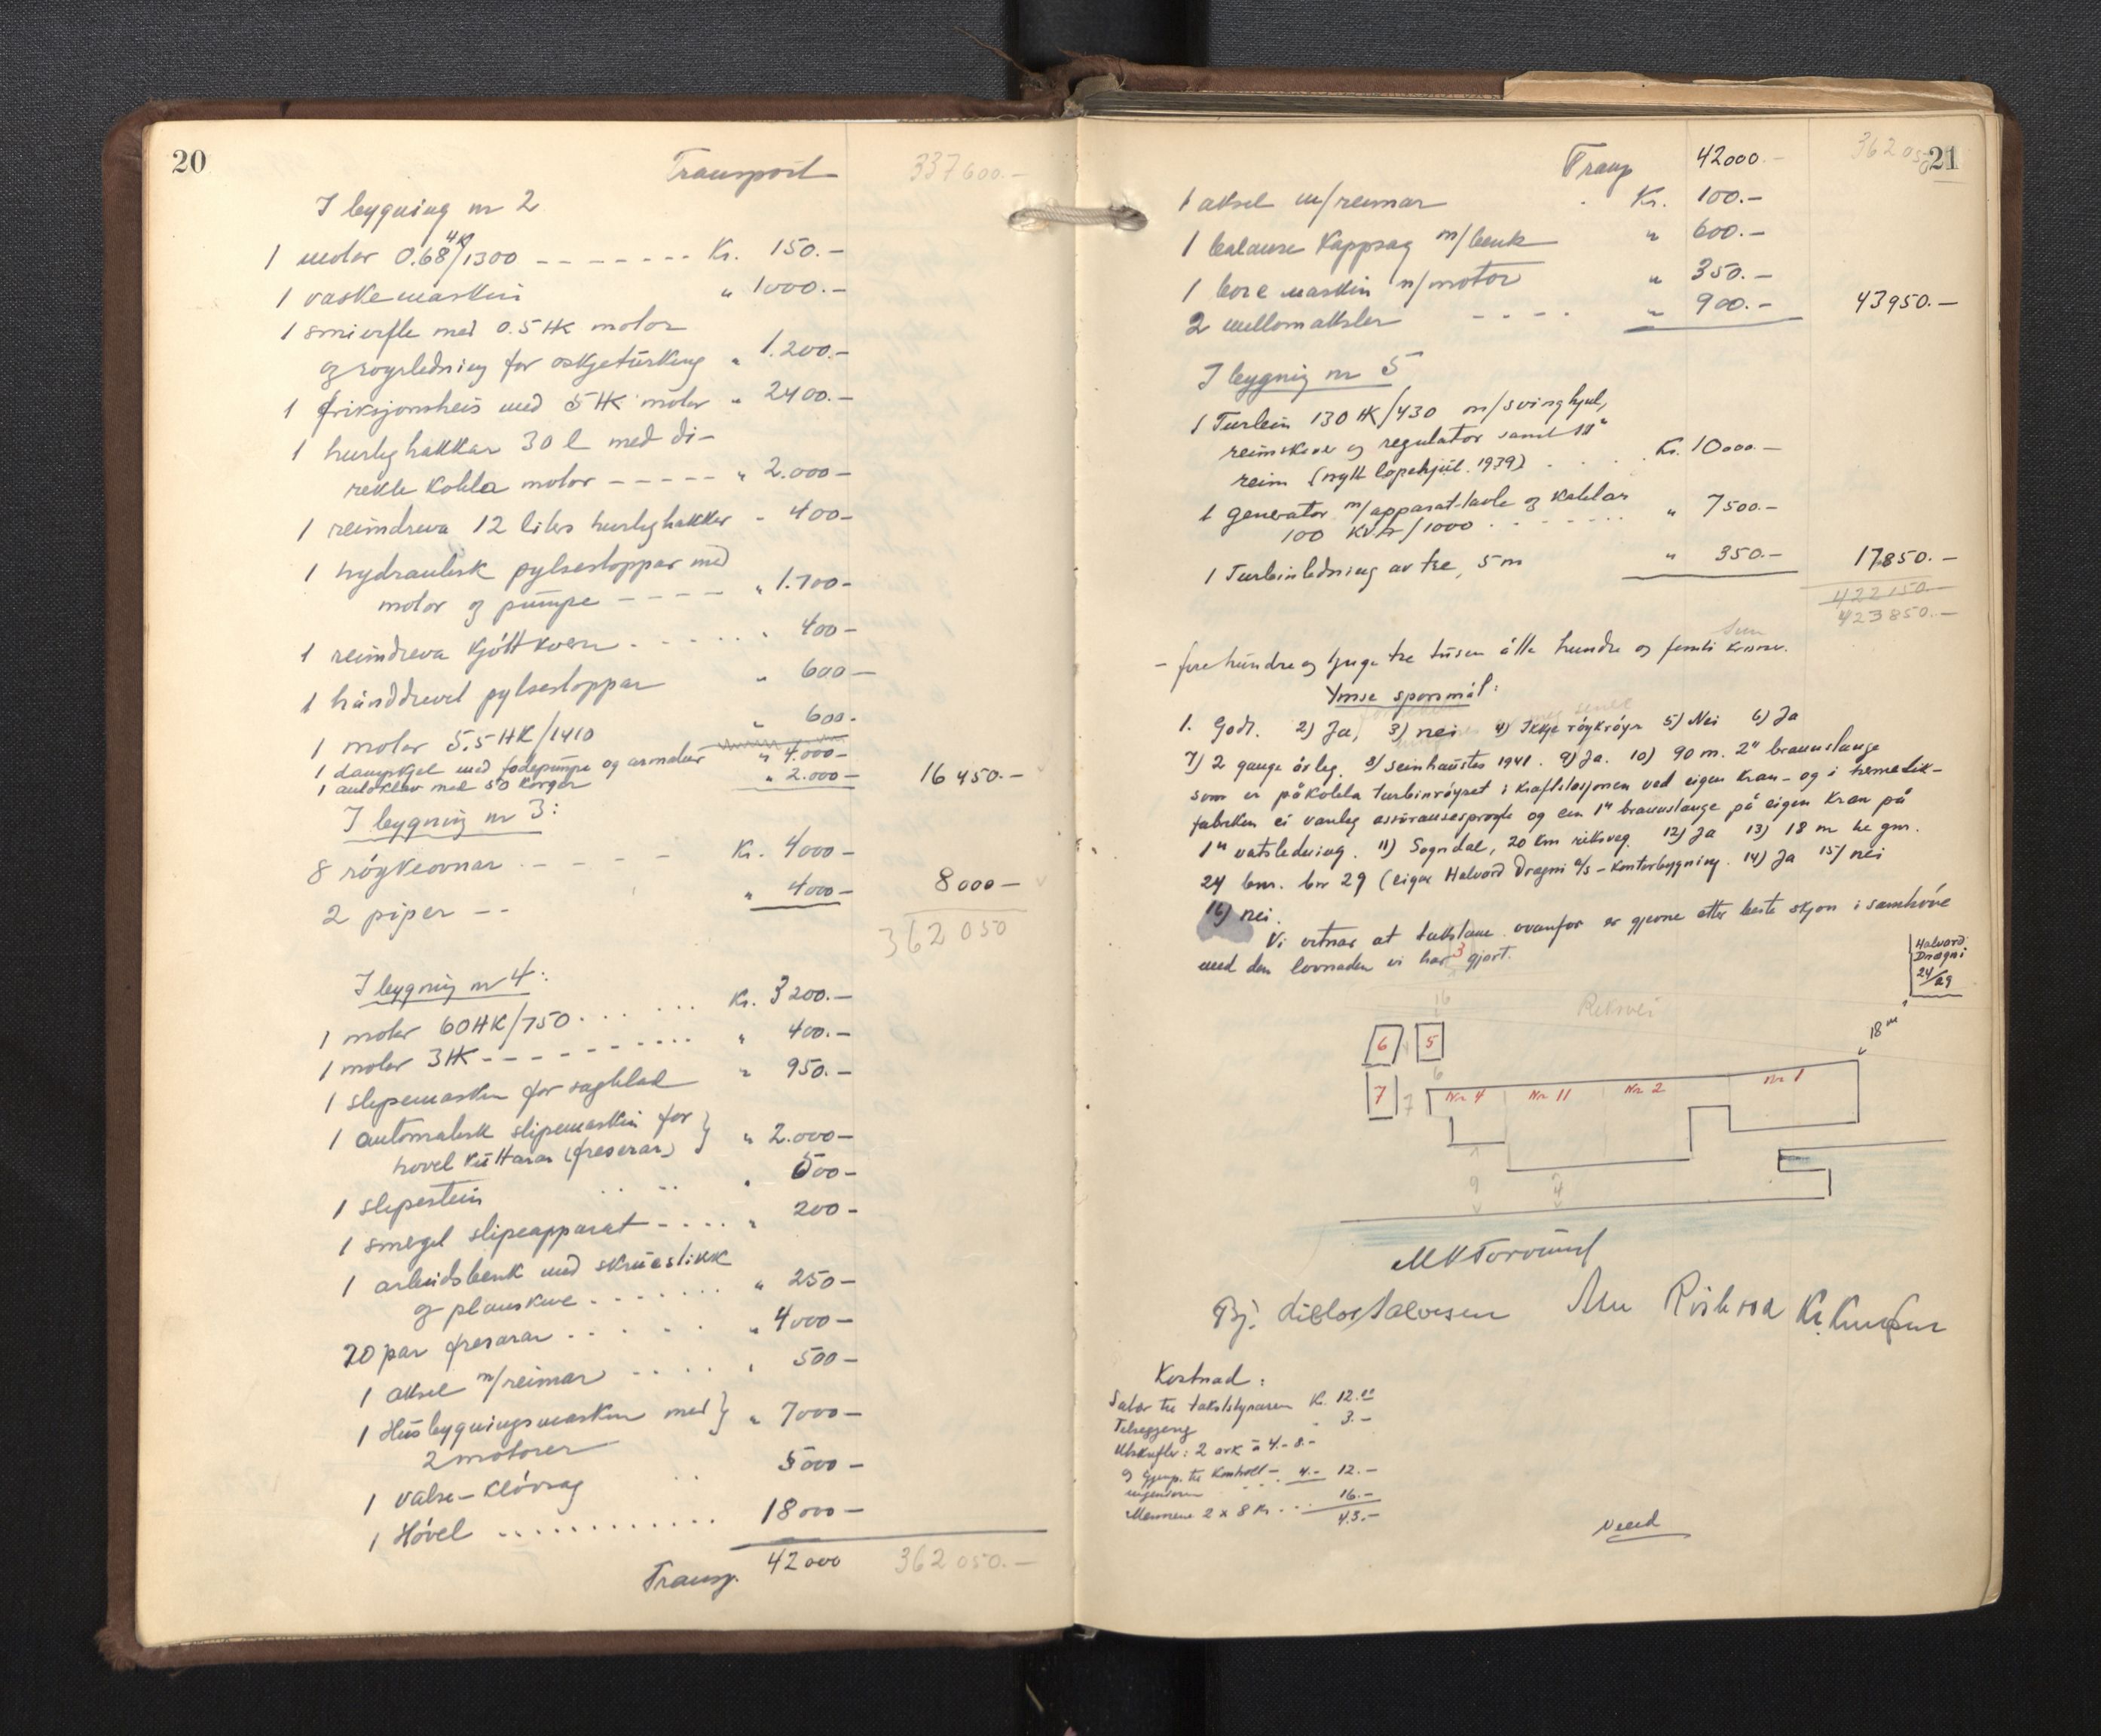 20
Transport 337600.-
I bygning nr 2
1 motor 0.68 HK/1300 - - - - - - - Kr. 150.-
1 vaskemaskin " 1000.-
1 smivifte med 0.5 HK motor
og røyrledning for oskjetürking " 1.200.-
1 friksjonsheis med 5 HK motor " 2400.-
1 hurtighakkar 30 l med di-
rekte kobla motor - - - - - " 2.000-
1 reimdreva 12 liters hurtighakkar - 400-
1 hydraulisk pylsestoppar med
motor og pumpe - - - - " 1.700-
1 reimdreva kjøttkvern . . . . . . 400-
1 hånddrevet pylsestoppar " 600-
1 motor 5,5 HK/1410 " 600-
1 dampkjel med fødepumpe og armatur " 4.000-
1 autoklav med 50 korger " 2.000- 16450.-
I bygning nr 3:
8 røykeovnar - - - - Kr. 4000-
2 piper - - " 4000- 8000-
362050
I bygning nr 4:
1 motor 60HK/750 . . . . . . Kr. 3200.-
1 motor 3 HK - - - - - - - - " 400.-
1 slipemaskin for sagblad " 950.-
1 automatisk slipemaskin for } " 2.000-
høvel küttarar (fresarar)
1 slipestein . . . . . 600-
1 smergel slipeapparat - - - - " 200-
1 arbeidsbenk med skrüestikk
og planskive . . . . . . . " 250-
20 par fresarar . . . . . " 4000-
1 aksel m/reimar . . . . . 500-
1 Husbygningsmaskin med } " 7000-
2 motorer
1 valse-kløvsag . . 5000-
1 Høvel . . . . . . . . . . . . 18000-
Transp. 42000 362050.-
21
Transp 42000.- 362050
1 aksel m/reimar . Kr. 100.-
1 balanse kappsag m/benk " 600.-
1 bore maskin m/motor " 350.-
2 mellomaksler - - - - " 900.- 43950.-
I bygning nr 5
1 Turbin 130 HK/430 m/svinghjul,
reimskiver og regulator samt 11"
reim (nytt løpehjül 1939) . . . Kr. 10000.-
1 generator m/apparat-tavle og kablar
100 KVA/1000 . . . . . . . " 7500.-
1 Turbinledning av tre, 5 m " 350.- 17.850.-
422150
423850.-
- fire hundre og tjuge tre tusen åtte hundre og femti kroner.
Ymse spørsmål:
1. Godt. 2) Ja, 3) nei 4) Ikkje røykrøyr 5) Nei 6) Ja
7) 2 gange årleg. 8) Seinhaustes 1941. 9) Ja. 10) 90 m. 2" brannslange
som er påkobla turbinrøyret i kraftstasjonen ved eigen kran - og i hermetik-
fabriken ei vanleg assüransesprøyte og ein 1" brannslange på eigen kran på
1" vatsledning. 11) Sogndal, 20 km riksveg. 12) Ja 13) 18 m he gnr.
24 bnr. 29 (eigar Halvord Dragni A/S - Kontorbygning. 14) Ja 15) nei
16) nei.
Vi vitnar at takstane ovanfor er gjevne etter beste skjøn i samhøve
med den lovnaden vi har gjort.
Halvord
Dragni
24/29
3
16
Riksvei
18 m
6
5
6
7
7
Nr 4
Nr 11
Nr 2
Nr 1
9
4
Kostnad:
Salær til takststyraren Kr. 12.00
Tilreggjeng " 3.-
Utskrifter: 2 ark à 4.- 8.-
4.- 12.-
Mennene 2 x 8 Kr. . . . 16.-
43.-